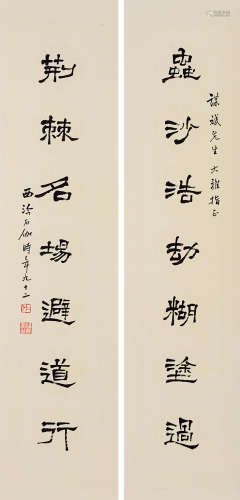 蟲沙浩劫糊塗過
荊棘名場避道行
先生大雅指正
西泠石伽時年九十二